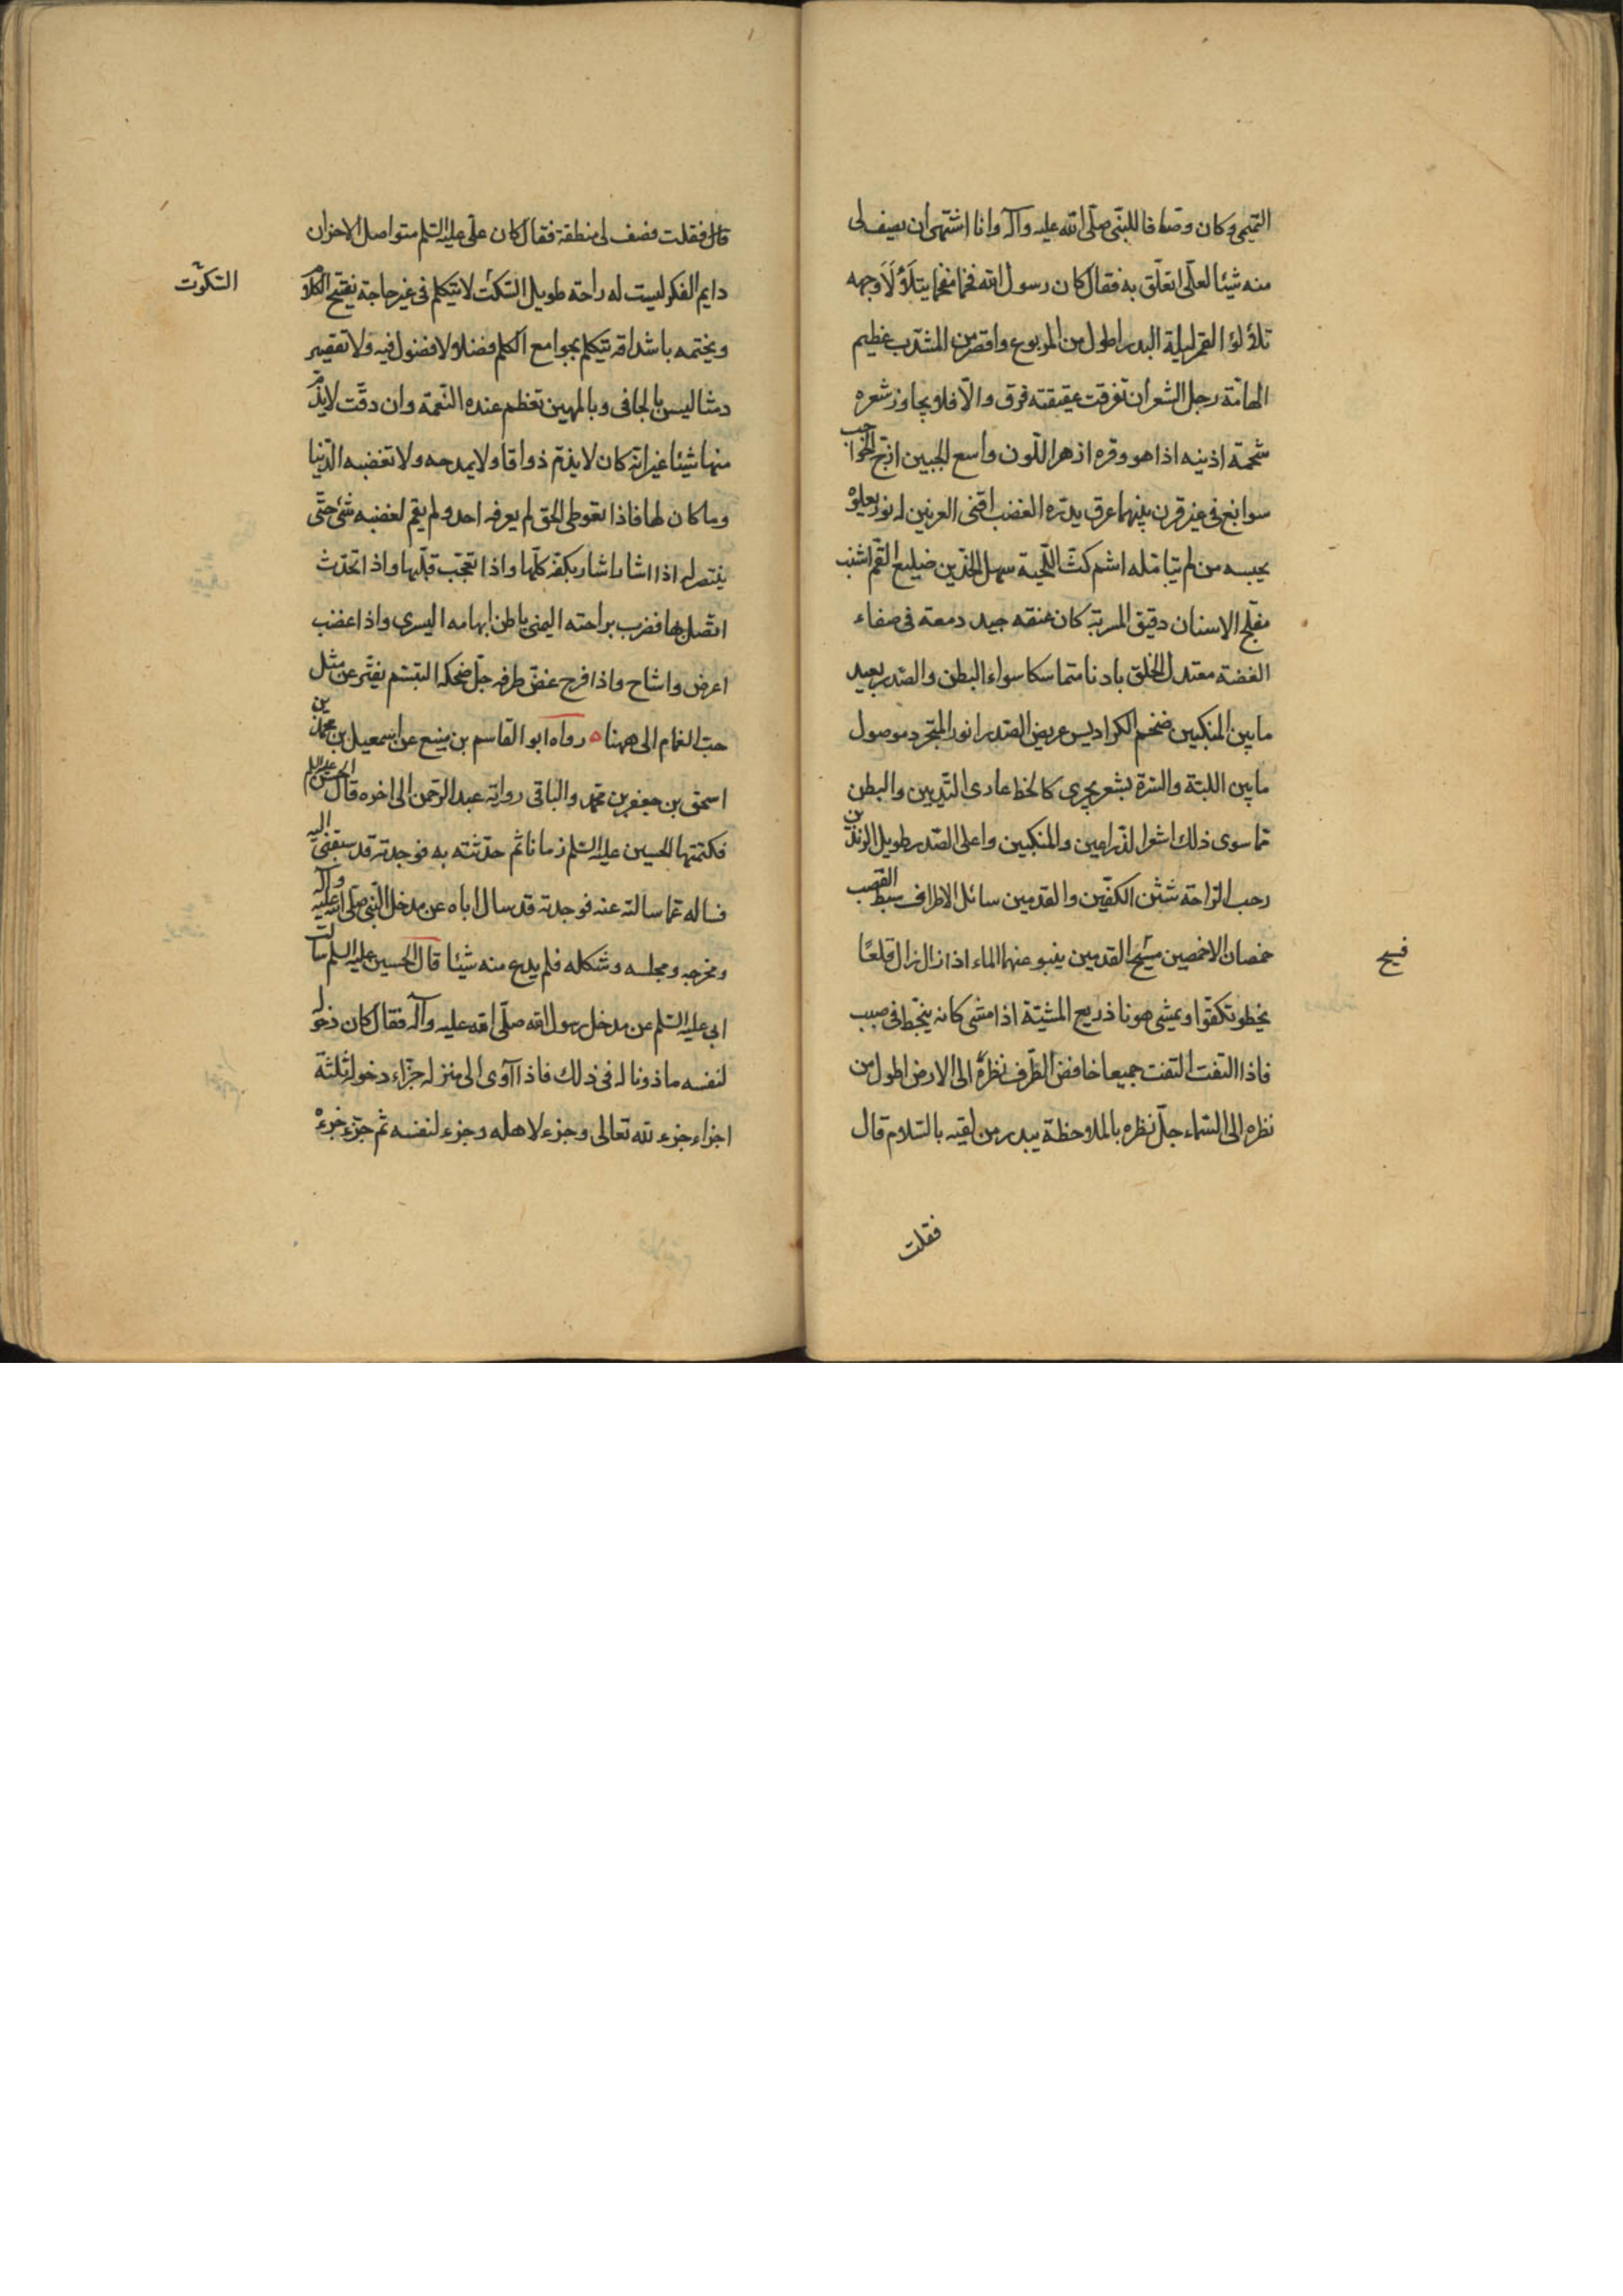 التميمى وكان وصّافا للنبّى صلّى الله عليه وآله وانا اشتهى أن يصف لى
منه شيئا لعلّى اتعلّق به فقال كان رسول الله فخما مفخما يتلألأ وجهه
تلألؤ القمر ليلة البدر اطول من المربوع واقصر من المشذّب عظيم
الهامّة رجل الشعر ان تفرقت عقيقته فرق والّا فلا يجاوز شعره
شحمة اذنيه اذا هو وفره ازهر اللون واسع الجبين ازجّ الحواجب
سوابغ فى غير قرن بينهما عرق يدرّه الغضب اقنى العرنين له نور يعلوه
يحسبه من لم يتامّله اشم كثّ اللّحية سهل الخدّين ضليع الفم اشنب
مفلج الاسنان دقيق المسربة كان عنقه جيد دمعة فى صفاء
الفضة معتدل الخلق بادنا متماسكا سواء البطن والصدر بعيد
مابين المنكبين ضخم الكراديس عريض الصدر انور المتجرد موصول
مابين اللبّة والسّرة بشعر يجرى كالخط عارى الثديين والبطن
مّما سوى ذلك اشعر الذراعين والمنكبين واعلى الصّدر طويل الزندين
رحب الراحة شثن الكفّين والقدمين سائل الاطراف سبط القصب
خمصان الاخمصين مسيح القدمين ينبو عنهما الماء اذا زال زال قلعًا
فسيح
يخطو تكفّوا ويمشى هونا ذريع المشيّة اذا مشى كانه ينحّط فى صبب
فاذا التفت التفت جميعا خافض الطّرف نظره الى الارض اطول من
نظره الى السّماء جلّ نظره بالملاحظة يبدر من لقيه بالسّلام قال
فقلت
قال فقلت فصف لى منطقه فقال كان على عليه السّلم متواصل الاحزان
دايم الفكر ليست له راحة طويل السّكت لا يتكلم فى غير حاجة يفتتح الكلام
السّكوت
ويختمه باشداقه يتكلم بجوامع الكلم فضلا ولا فضول فيه ولا تقصير
دمثا ليس بالجافى وبالمهين تعظم عنده النّعمة وان دقّت لا يذمّ
منها شيئا غير انّه كان لا يذمّ ذواقا ولا يمدحه ولا تغضبه الدّنيا
وما كان لها فاذا تعوطى الحّق لم يعرفه احد ولم يقم لغضبه شئ حتّى
ينتصر له اذا اشار اشار بكفّه كلّها واذا تعجّب قلّبها واذا تحدّث
اتّصل بها فضرب براحته اليمنى باطن ابهامه اليسرى واذا غضب
اعرض واشاح واذا فرح غضّ طرفه جلّ ضحكه التبسّم يفتّر عن مثل
حبّ الغمام الى ههنا ٥ رواه ابو القاسم بن منيع عن اسمعيل بن محمّد بن
اسحق بن جعفر بن محمّد والباقى رواية عبد الرحمن الى اخره قال الحسن عليه السلم
فكتمتها الحسين عليه السّلم زمانا ثم حدّثته به فوجدته قد سبقنى اليه
فساله عمّا سالته عنه فوجدته قد سال اباه عن مدخل النّبى صلّى الله عليه وآله
ومخرجه ومجلسه وشكله فلم يدع منه شيئا قال الحسين عليه السلم سالت
ابى عليه السّلم عن مدخل رسول الله صلّى الله عليه وآله فقال كان دخوله
لنفسه ماذونا له فى ذلك فاذا آوى الى منزله جزّاء دخوله ثلثة
اجزاء جزء لله تعالى وجزء لاهله وجزء لنفسه ثم جزّء جزءه